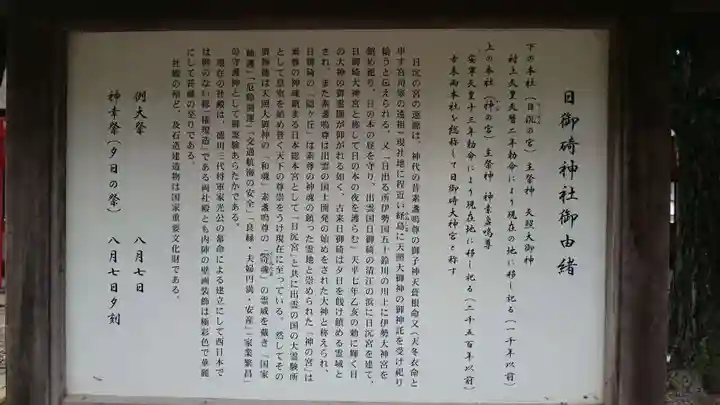 日御碕神社御由緒
下の本社(日沉の宮)主祭神 天照大御神
村上天皇天暦二年勅命により現在の地に移し祀る(一千年以前)
上の本社(神の宮)主祭神 神素盞嗚尊
安寧天皇十三年勅命により現在地に移し祀る(二千五百年以前)
古来両本社を総称して日御碕大神宮と称す
日沉の宮の遠源は、神代の昔素盞嗚尊の御子神天葺根命又(天冬衣命と
申す宮司家の遠祖)現社地に程近い経島に天照大御神の御神託を受け祀り
給うと伝えられる、又「日出る所伊勢国五十鈴川の川上に伊勢大神宮を
鎮め祀り、日の本の昼を守り、出雲国日御碕の清江の浜に日沉宮を建て、
日御碕大神宮と称して日の本の夜を護らむ」天平七年乙亥の勅に輝く日
の大神の御霊顕が仰がれる如く、古来日御碕は夕日を餞け鎮める霊域と
され、また素盞嗚尊は出雲の国土開発の始めをされた大神と称えられ、
日御碕の「隠ヶ丘」は素尊の神魂の鎮った霊地と崇められた「神の宮」は
素尊の神魂鎮まる日本総本宮として「日沉宮」と共に出雲の国の大霊験所
として皇室を始め普く天下の尊崇をうけ現在に至っている。然してその
御神徳は天照大御神の「和魂」素盞嗚尊の「荒魂」の霊威を戴き「国家
鎮護」「厄除開運」「交通航海の安全」「良縁・夫婦円満・安産」「家業繁昌」
の守護神として御霊験あらたかである。
現在の社殿は、徳川三代将軍家光公の幕命による建立にして西日本で
は例のない総「権現造」である両社殿とも内陣の壁画装飾は極彩色で華麗
にして荘厳の至りである。
社殿の殆ど、及石造建造物は国家重要文化財である。
例大祭 八月七日
神幸祭(夕日の祭) 八月七日夕刻